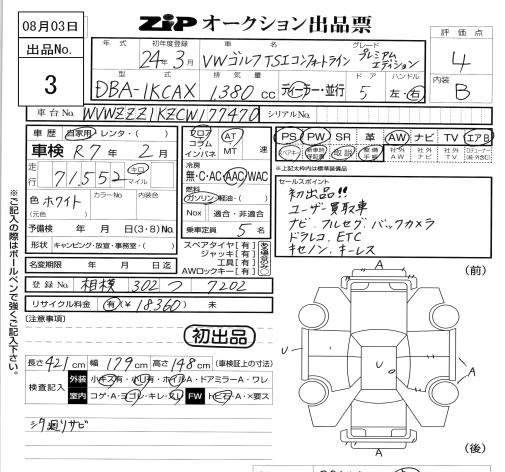 08月03日
ZiP オークション出品票
出品No.
3
年式 初年度登録 車名 グレード
24年3月 VWゴルフTSIコンフォートライン プレミアムエディション
評価点
4
内装
B
型式 排気量 ドア ハンドル
DBA-1KCAX 1,380 cc ディーラー・並行 5 左・右
車台No. WVWZZZ1KZCW177470 シリアルNo.
車歴 自家用 レンタ・( )
車検 R7年2月
走行 71,552 キロ マイル
色 ホワイト カラーNo 内装色
(元色)
予備検 年 月 日(3・8)No.
形状 キャンピング・放宣・事務室・( )
名変期限 年 月 日迄
フロア コラム インパネ AT MT 速
冷房
無・C・AC AAC/WAC
燃料
ガソリン 軽油・( )
Nox 適合・非適合
乗車定員 5名
スペアタイヤ[有]
ジャッキ[有]
工具[有]
AWロックキー[有]
PS PW SR 革 AW ナビ TV エアB
スペアキー 新車時保証書 取説 整備手帳 社外AW 社外ナビ 社外TV
※上記太枠内は標準装備品
セールスポイント
初出品!!
ユーザー買取車
ナビ.フルセグ.バックカメラ
ドラレコ.ETC
キセノン.キーレス
登録No. 相模 302 つ 7202
リサイクル料金 有(¥18,360) 未
[注意事項]
初出品
長さ421cm 幅179cm 高さ148cm (車検証上の寸法)
検査記入 外装 小キズ有・小凹有・ホイルA・ドアミラーA・ワレ
室内 コゲA・ヨゴレ・キレ・スレ FW トビ石・A・×要ス
シタ廻りサビ
※ご記入の際はボールペンで強くご記入下さい。
(前)
A
U
U
A
A
(後)